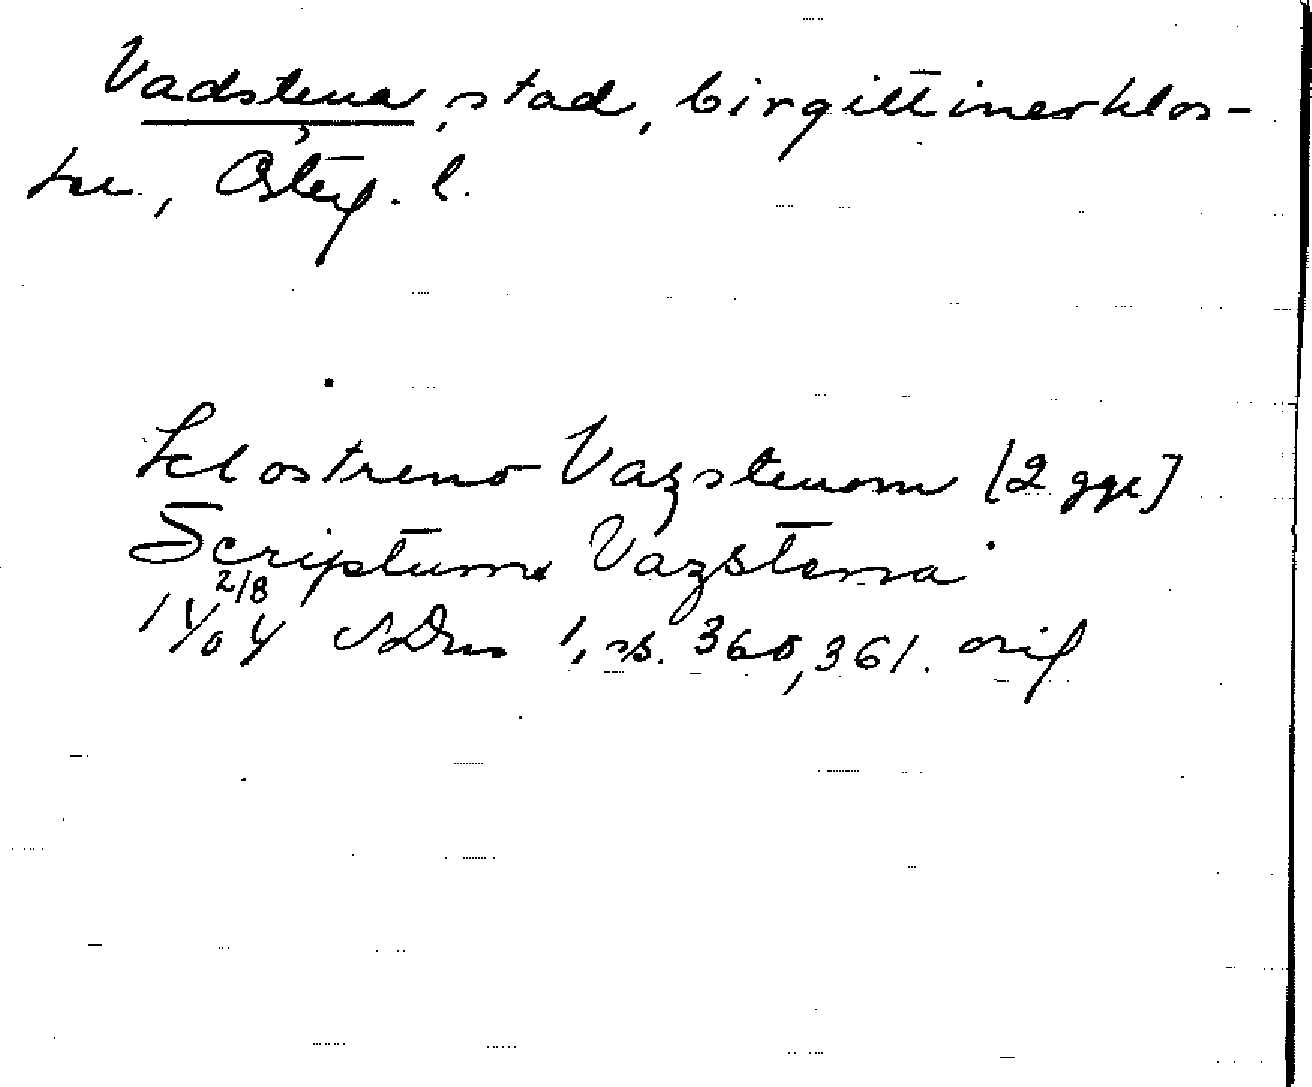 Vadstena, stad, birgittinerklos-
ter, Österg. l.
klostreno Vazstenom [2 ggr]
Scriptum Vazstena
14 2/8 04 SDns 1, s. 360, 361. orig